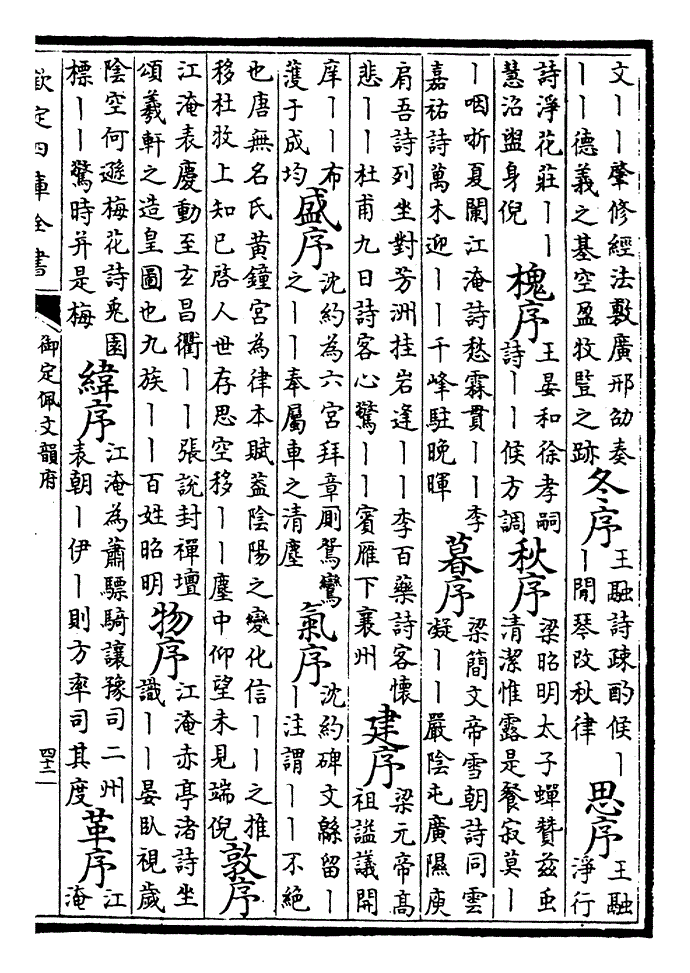 文丨丨肇修經法敷廣邢劭奏
丨丨德義之基空盈牧豎之跡
冬序
王融詩疎酌候丨
丨閒琴改秋律
思序
王融
淨行
詩淨花莊丨丨
慧沼盥身倪
槐序
王晏和徐孝嗣
詩丨丨候方調
秋序
梁昭明太子蟬贊兹虫
清潔惟露是餐寂莫丨
丨咽哳夏闌江淹詩愁霖貫丨丨李
嘉祐詩萬木迎丨丨千峰駐晚暉
暮序
梁簡文帝雪朝詩同雲
凝丨丨嚴陰屯廣隰庾
肩吾詩列坐對芳洲挂岩逢丨丨李百藥詩客懷
悲丨丨杜甫九日詩客心驚丨丨賓雁下襄州
建序
梁元帝高
祖謚議開
庠丨丨布
濩于成均
盛序
沈約為六宮拜章厠鴛鸞
之丨丨奉屬車之清塵
氣序
沈約碑文緜留丨
丨注謂丨丨不絕
也唐無名氏黃鐘宮為律本賦葢陰陽之變化信丨丨之推
移杜牧上知已啓人世存思空移丨丨塵中仰望未見端倪
敦序
江淹表慶動至玄昌衢丨丨張說封禪壇
頌羲軒之造皇圖也九族丨丨百姓昭明
物序
江淹赤亭渚詩坐
識丨丨晏臥視歲
陰空何遜梅花詩兎園
標丨丨驚時并是梅
緯序
江淹為蕭驃騎讓豫司二州
表朝丨伊丨則方率司其度
革序
江
淹
欽定四庫全書
御定佩文韻府
四十二